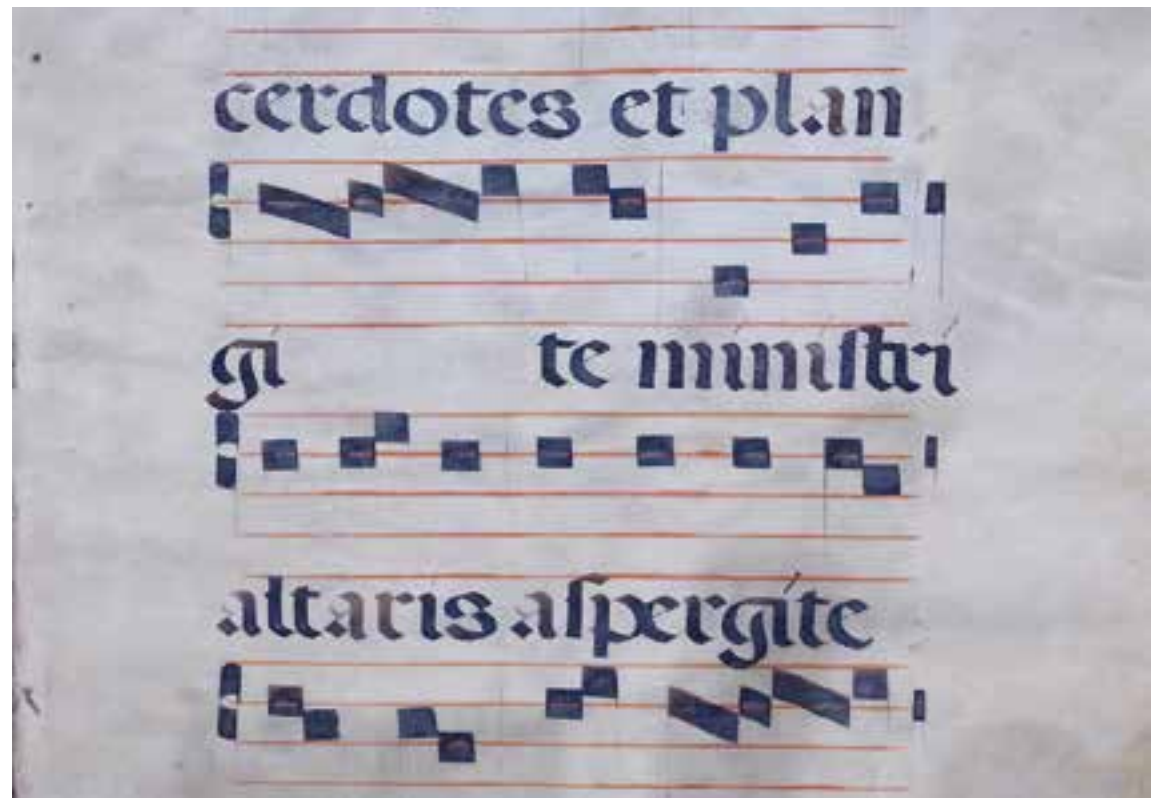 cerdotes et plan
gi te miniſtri
altaris aſpergíte